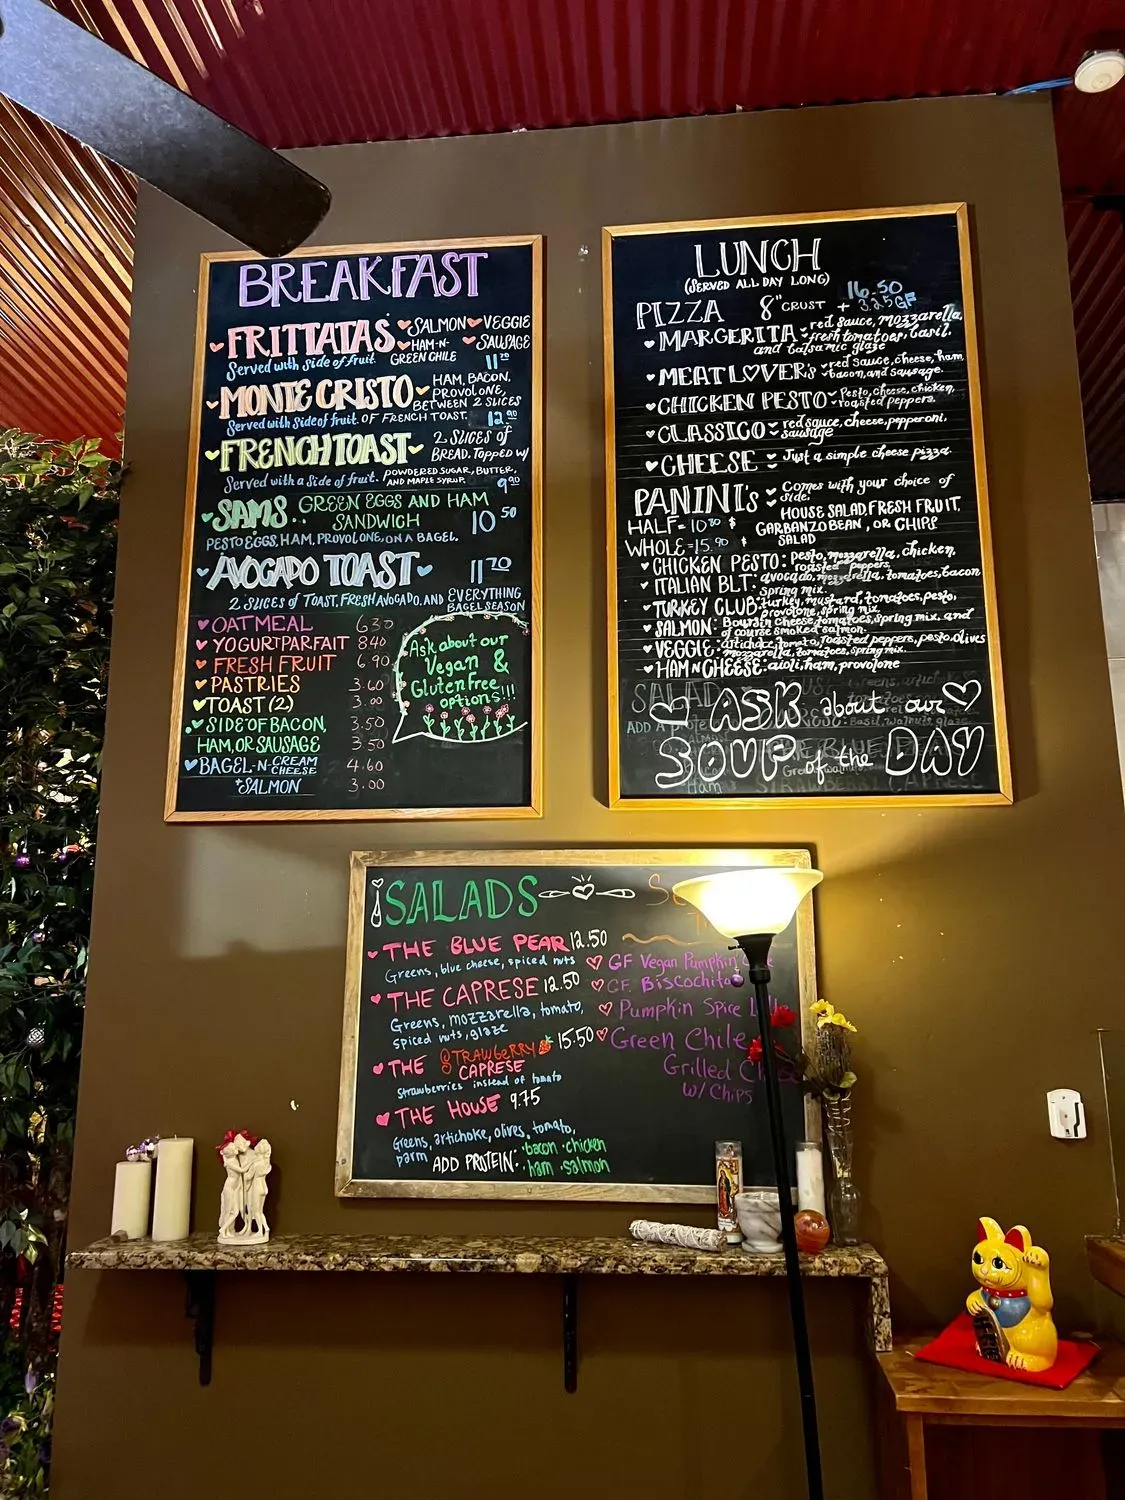 BREAKFAST
FRITTATAS SALMON VEGGIE
HAM-N- SAUSAGE
GREEN CHILE
Served with side of fruit. 11
MONTE CRISTO HAM, BACON,
PROVOLONE,
BETWEEN 2 SLICES
Served with side of fruit. OF FRENCH TOAST. 12.90
FRENCH TOAST 2 SLICES of
BREAD. Topped w/
Served with a side of fruit. POWDERED SUGAR, BUTTER,
AND MAPLE SYRUP. 9.90
SAMS.. GREEN EGGS AND HAM
SANDWICH 10 50
PESTO EGGS, HAM, PROVOLONE, ON A BAGEL.
AVOCADO TOAST 11 70
2 SLICES of TOAST, FRESH AVOCADO, AND EVERYTHING
BAGEL SEASON
OATMEAL 6.30
YOGURT PARFAIT 8.40
FRESH FRUIT 6.90
PASTRIES 3.60
TOAST (2) 3.00
SIDE OF BACON, 3.50
HAM, OR SAUSAGE 3.50
BAGEL-N-CREAM CHEESE 4.60
+SALMON 3.00
Ask about our
Vegan &
Gluten Free
options!!!
LUNCH
(SERVED ALL DAY LONG)
PIZZA 8" CRUST 16.50
+ 3.25 GF
MARGERITA red sauce, mozzarella,
fresh tomatoes, basil,
and balsamic glaze
MEAT LOVER's red sauce, cheese, ham,
bacon, and sausage.
CHICKEN PESTO Pesto, cheese, chicken,
roasted peppers.
CLASSICO red sauce, cheese, pepperoni,
sausage
CHEESE Just a simple cheese pizza.
PANINI's Comes with your choice of
side:
HOUSE SALAD, FRESH FRUIT,
HALF = 10 $ GARBANZO BEAN, OR CHIPS
SALAD
WHOLE = 15.90 $
CHICKEN PESTO: pesto, mozzarella, chicken,
roasted peppers
ITALIAN BLT: avocado, mozzarella, tomatoes, bacon
Spring mix.
TURKEY CLUB: turkey, mustard, tomatoes, pesto,
provolone, spring mix
SALMON: Boursin cheese, tomatoes, spring mix, and
of course smoked salmon.
VEGGIE: artichoke, tomato, roasted peppers, pesto, olives
mozzarella, tomatoes, spring mix.
HAM N CHEESE: aioli, ham, provolone
SALAD
ADD A
ASK about our
SOUP of the DAY
Ham
SALADS
THE BLUE PEAR 12.50
Greens, blue cheese, spiced nuts
THE CAPRESE 12.50
Greens, mozzarella, tomato,
spiced nuts, glaze
THE STRAWBERRY 15.50
CAPRESE
Strawberries instead of tomato
THE HOUSE 9.75
Greens, artichoke, olives, tomato,
parm
ADD PROTEIN: bacon chicken
ham salmon
GF Vegan Pumpkin
GF. Biscochito
Pumpkin Spice
Green Chile
Grilled
w/ Chips